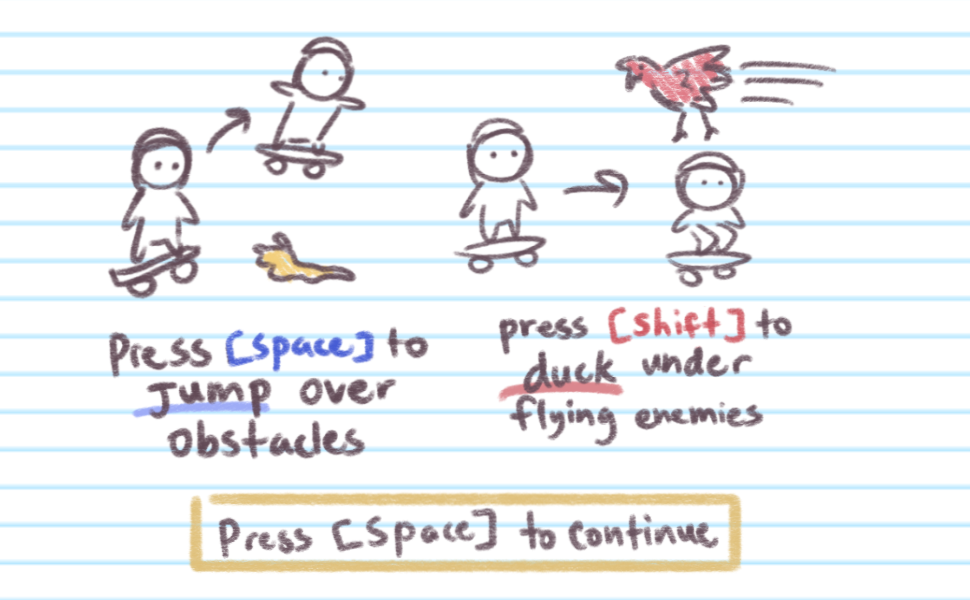 Press [space] to
Jump over
obstacles
press [shift] to
duck under
flying enemies
Press [Space] to continue